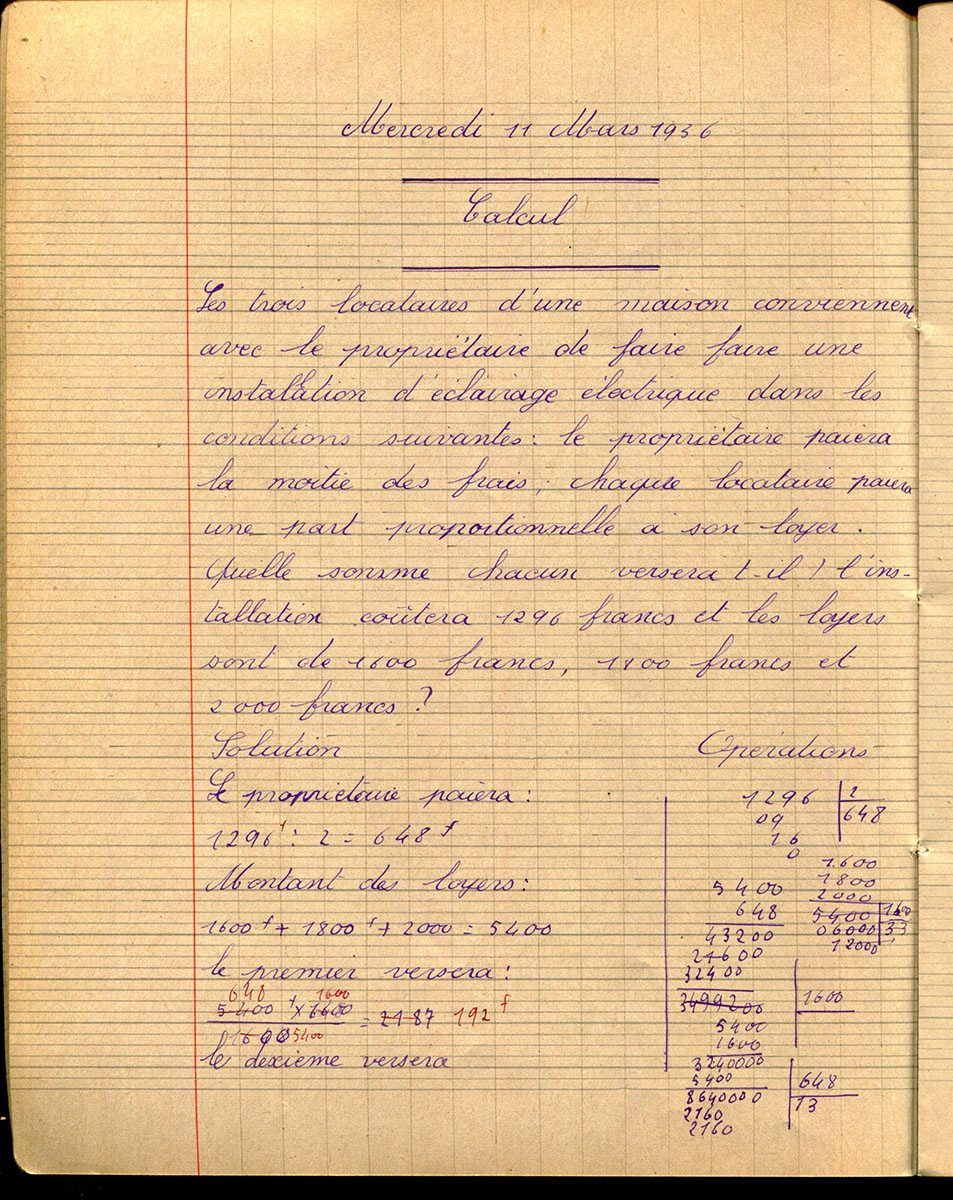 Mercredi 11 Mars 1936
Calcul
Les trois locataires d'une maison conviennent
avec le propriétaire de faire faire une
installation d'éclairage électrique dans les
conditions suivantes: le propriétaire paiera
la moitie des frais; chaque locataire paiera
une part proportionnelle à son loyer.
Quelle somme chacun versera t-il! l'ins-
tallation coûtera 1296 francs et les loyers
sont de 1600 francs, 1800 francs et
2000 francs?
Solution
Le propriétaire paiera:
1296f: 2 = 648f
Montant des loyers:
1600f + 1800f + 2000 = 5400
le premier versera:
648 1600
5400f x
= 2187 192f
5400
le dexieme versera
Opérations
1296 2
09 648
16
0
1600
1800
2000
5400 1600
06000 33
12000
5400
648
43200
21600
32400
3499200 1600
5400
1600
3240000
5400
8640000 648
2160 13
2160